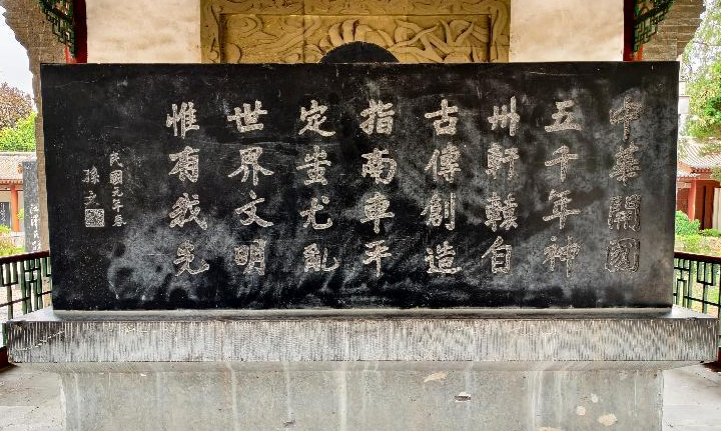 中華開國
五千年神
州軒轅自
古傳創造
指南車平
定蚩尤亂
世界文明
惟有我先
民國元年春
孫文
江澤民